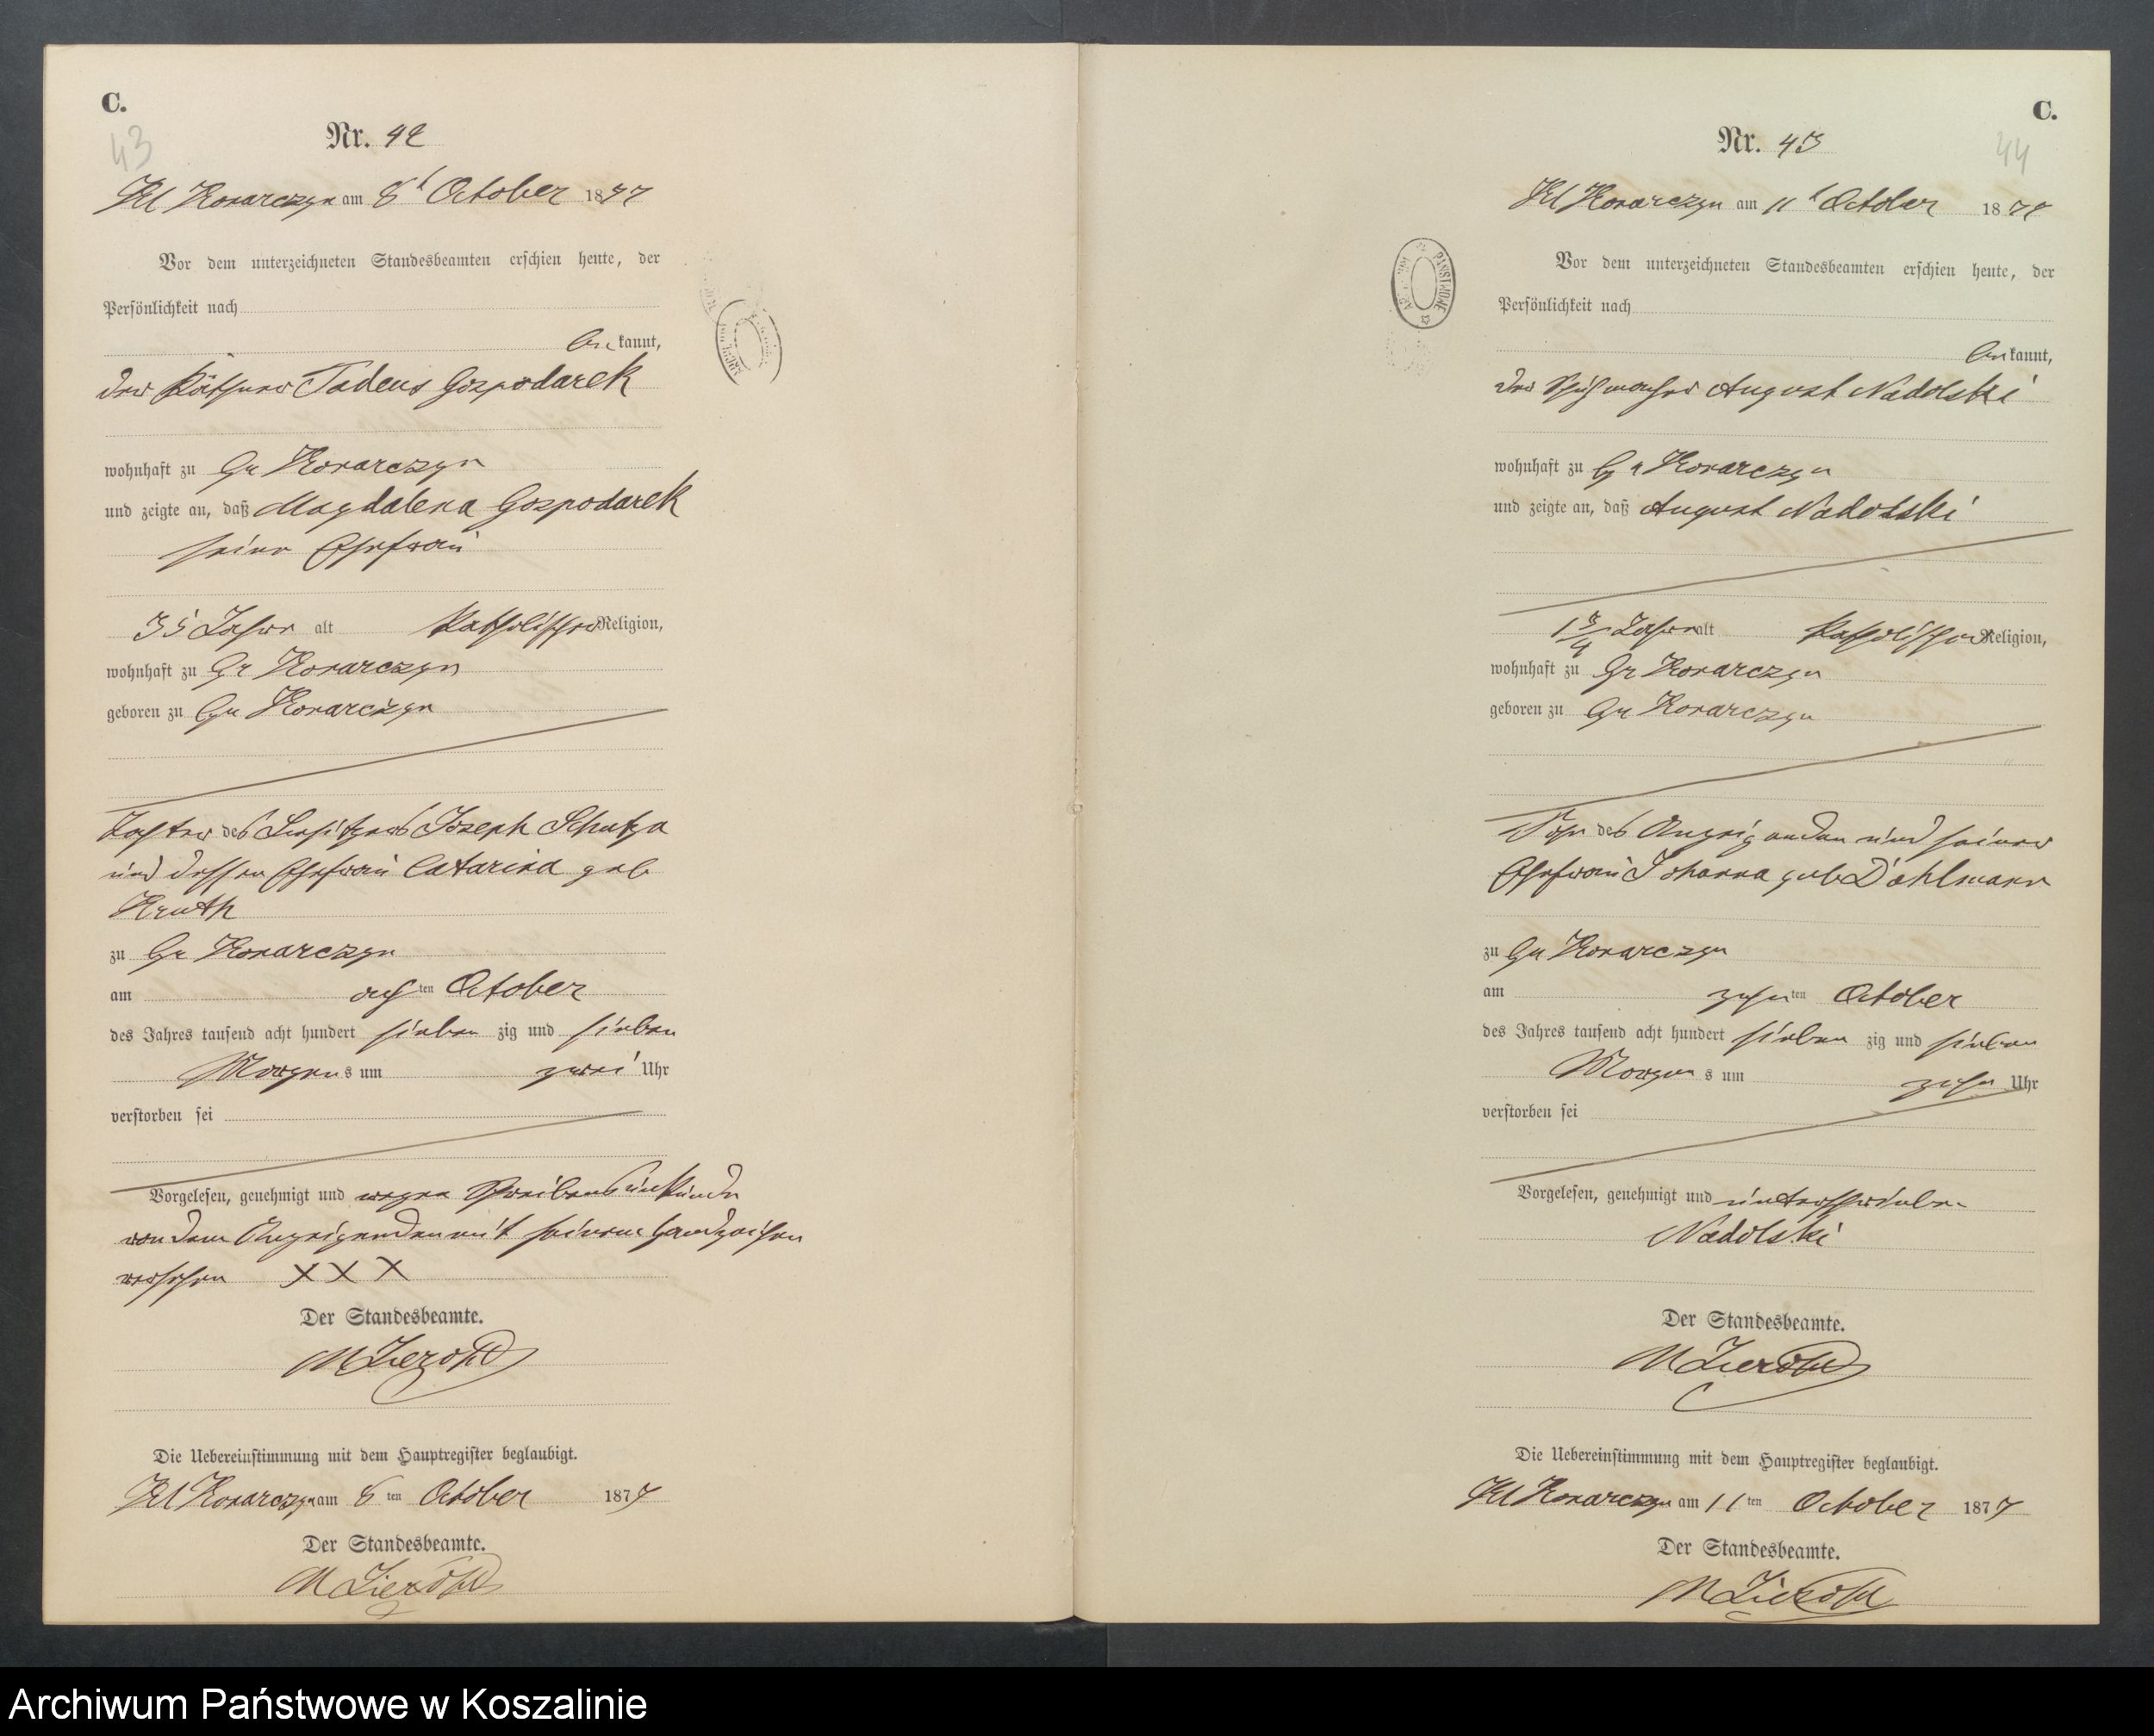 C.
43
Nr. 42
Kl Konarczyn am 8t October 1877
Vor dem unterzeichneten Standesbeamten erschien heute, der
Persönlichkeit nach
be kannt,
der Käthner Tadeus Gospodarek
wohnhaft zu Gr Konarczyn
und zeigte an, daß Magdalena Gospodarek
seine Ehefrau
35 Jahre alt katholischer Religion,
wohnhaft zu Gr Konarczyn
geboren zu Gr Konarczyn
Tochter des Besitzers Joseph Schutza
und dessen Ehefrau Catarina geb
Kruth
zu Gr Konarczyn
am ach ten October
des Jahres tausend acht hundert sieben zig und sieben
Morgen s um zwei Uhr
verstorben sei
Vorgelesen, genehmigt und wegen Schreibensunkunde
von dem Anzeigenden mit seinem Handzeichen
versehen XXX
Der Standesbeamte.
Die Uebereinstimmung mit dem Hauptregister beglaubigt.
Kl Konarczyn am 8 ten October 1877
Der Standesbeamte.
C.
44
Nr. 43
Kl Konarczyn am 11t October 1877
Vor dem unterzeichneten Standesbeamten erschien heute, der
Persönlichkeit nach
be kannt,
der Schuhmacher August Nadolski
wohnhaft zu Gr Konarczyn
und zeigte an, daß August Nadolski
1 3/4 Jahre alt katholischer Religion,
wohnhaft zu Gr Konarczyn
geboren zu Gr Konarczyn
Sohn des Anzeigenden und seiner
Ehefrau Johanna geb Dahlmann
zu Gr Konarczyn
am zehn ten October
des Jahres tausend acht hundert sieben zig und sieben
Morgen s um zehn Uhr
verstorben sei
Vorgelesen, genehmigt und unterschrieben
Nadolski
Der Standesbeamte.
Die Uebereinstimmung mit dem Hauptregister beglaubigt.
Kl Konarczyn am 11 ten October 1877
Der Standesbeamte.
Archiwum Państwowe w Koszalinie